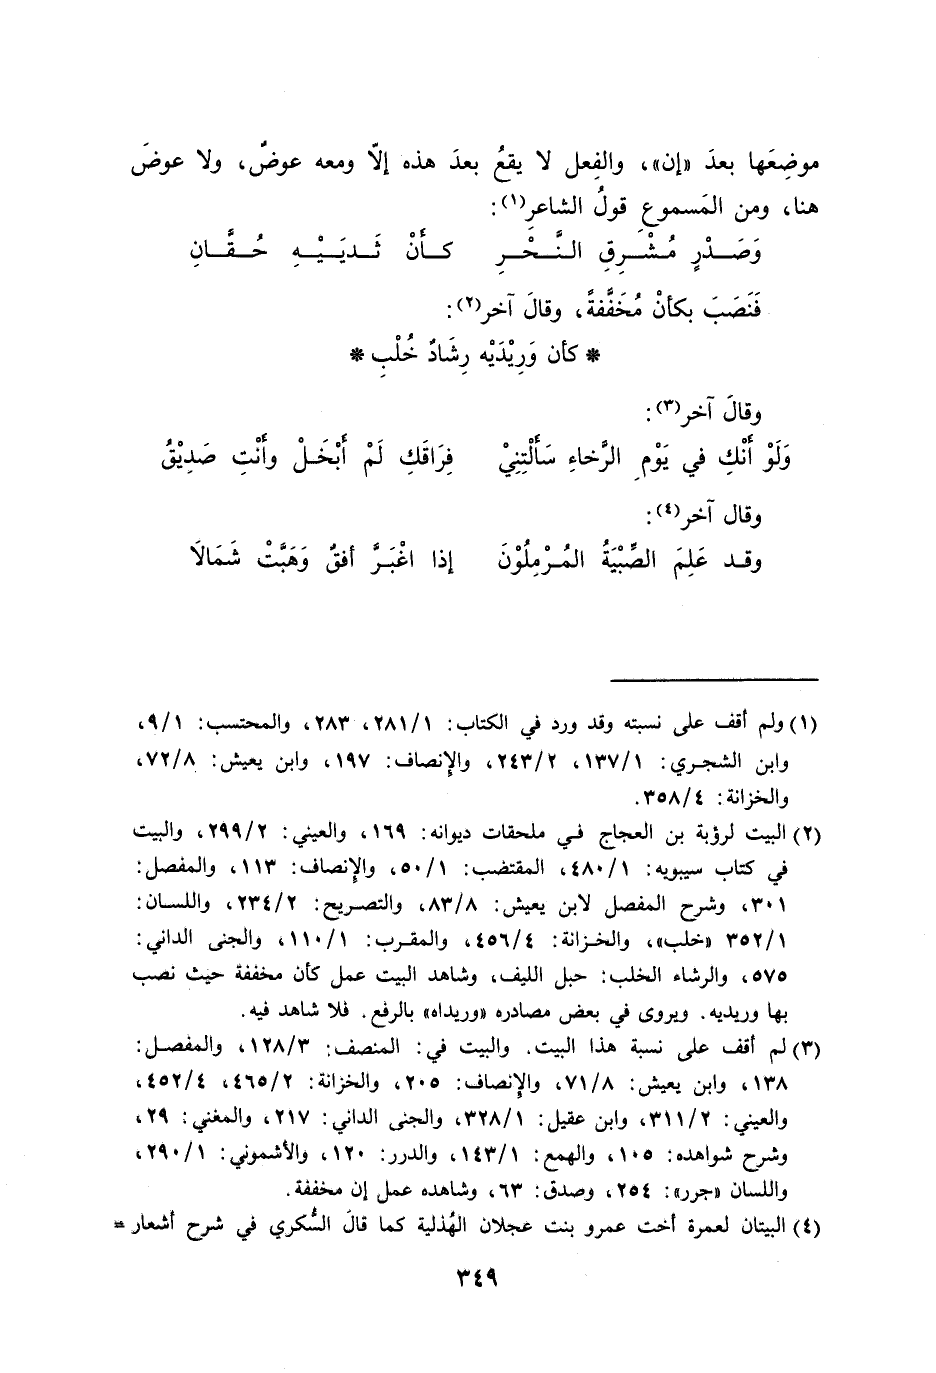 موضِعَها بعدَ «إن»، والفِعل لا يقعُ بعدَ هذه إلّا ومعه عوضٌ، ولا عوضَ
هنا، ومن المَسموعِ قولُ الشاعرِ(١):
وَصَــدْرٍ مُـشْـرِقِ الـنَّـحْـرِ كـأَنْ ثَـديَـيْـهِ حُـقَّـانِ
فَنَصَبَ بكأنْ مُخَفَّفةً، وقالَ آخر(٢):
* كأن وَرِيْدَيْه رِشَادُ خُلْبِ *
وقالَ آخر(٣):
وَلَوْ أَنْكِ في يَوْمِ الرَّخاءِ سَأَلْتِنِيْ فِرَاقَكِ لَمْ أَبْخَـلْ وأَنْتِ صَدِيْقُ
وقال آخر(٤):
وقـد عَلِمَ الصِّبْيَةُ المُـرْمِلُوْنَ إذا اغْبَـرَّ أفقٌ وَهَبَّتْ شَمَالَا
(١) ولم أقف على نسبته وقد ورد في الكتاب: ٢٨١/١، ٢٨٣، والمحتسب: ٩/١،
وابن الشجـري: ١٣٧/١، ٢٤٣/٢، والإنصاف: ١٩٧، وابن يعيش: ٧٢/٨،
والخزانة: ٣٥٨/٤.
(٢) البيت لرؤبة بن العجاج فـي ملحقات ديوانه: ١٦٩، والعيني: ٢٩٩/٢، والبيت
في كتاب سيبويه: ٤٨٠/١، المقتضب: ٥٠/١، والإنصاف: ١١٣، والمفصل:
٣٠١، وشرح المفصل لابن يعيش: ٨٣/٨، والتصـريح: ٢٣٤/٢، واللسـان:
٣٥٢/١ «خلب»، والخـزانة: ٤٥٦/٤، والمقرب: ١١٠/١، والجنى الداني:
٥٧٥، والرشاء الخلب: حبل الليف، وشاهد البيت عمل كأن مخففة حيث نصب
بها وريديه. ويروى في بعض مصادره «وريداه» بالرفع. فلا شاهد فيه.
(٣) لم أقف على نسبة هذا البيت. والبيت في: المنصف: ١٢٨/٣، والمفصـل:
١٣٨، وابن يعيش: ٧١/٨، والإنصاف: ٢٠٥، والخزانة: ٤٦٥/٢، ٤٥٢/٤،
والعيني: ٣١١/٢، وابن عقيل: ٣٢٨/١، والجنى الداني: ٢١٧، والمغني: ٢٩،
وشرح شواهده: ١٠٥، والهمع: ١٤٣/١، والدرر: ١٢٠، والأشموني: ٢٩٠/١،
واللسان «جرر»: ٢٥٤، وصدق: ٦٣، وشاهده عمل إن مخففة.
(٤) البيتان لعمرة أخت عمرو بنت عجلان الهُذلية كما قالَ السُّكري في شرح أشعار =
٣٤٩